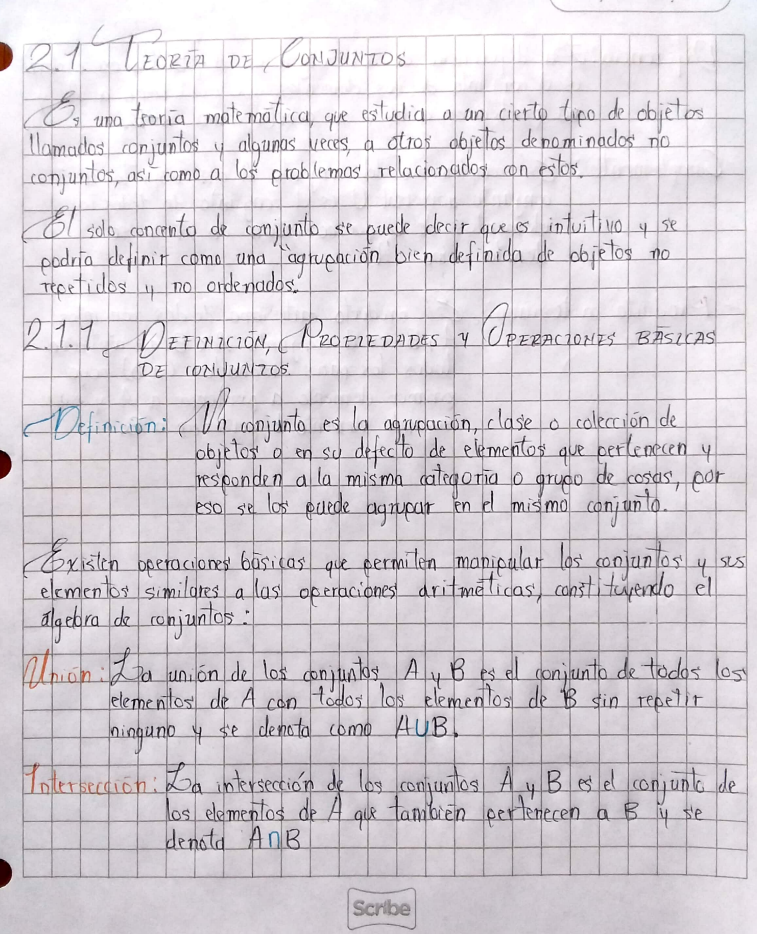 2.1 TEORÍA DE CONJUNTOS
Es una teoría matemática, que estudia a un cierto tipo de objetos
llamados conjuntos y algunas veces, a otros objetos denominados no
conjuntos, así como a los problemas relacionados con estos.
El solo concento de conjunto se puede decir que es intuitivo y se
podría definir como una "agrupación bien definida de objetos no
repetidos y no ordenados."
2.1.1 DEFINICIÓN, PROPIEDADES Y OPERACIONES BÁSICAS
DE CONJUNTOS
Definición: Un conjunto es la agrupación, clase o colección de
objetos o en su defecto de elementos que pertenecen y
responden a la misma categoría o grupo de cosas, por
eso se los puede agrupar en el mismo conjunto.
Existen operaciones básicas que permiten manipular los conjuntos y sus
elementos similares a las operaciones aritméticas, constituyendo el
álgebra de conjuntos:
Unión: La unión de los conjuntos A y B es el conjunto de todos los
elementos de A con todos los elementos de B sin repetir
ninguno y se denota como A∪B.
Intersección: La intersección de los conjuntos A y B es el conjunto de
los elementos de A que también pertenecen a B y se
denota A∩B
Scribe